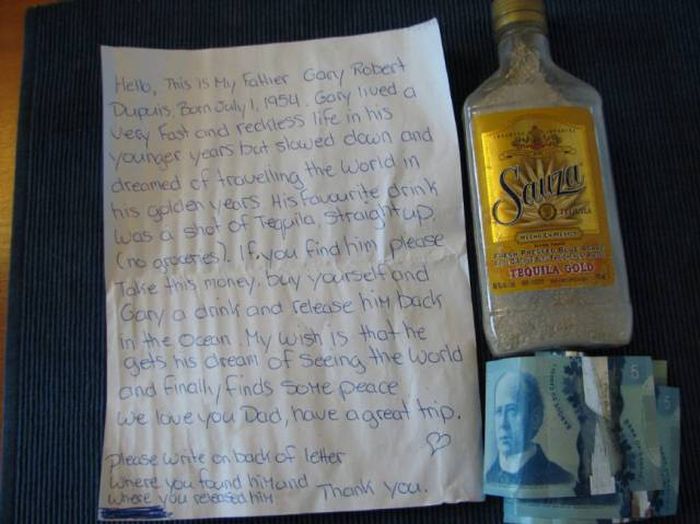 Hello, This is My Father Gary Robert
Dupuis, Born July 1, 1954. Gary lived a
very fast and reckless life in his
younger years but slowed down and
dreamed of travelling the world in
his golden years. His favourite drink
was a shot of Tequila, straight up.
(no groceries). If you find him please
Take this money, buy yourself and
Gary a drink and release him back
in the ocean. My wish is that he
gets his dream of seeing the world
and finally finds some peace
we love you Dad, have a great trip.
please write on back of letter
where you found him and
where you released him
Thank you.
Sauza
TEQUILA
HECHO EN MEXICO
FRESH PRESSED BLUE AGAVE
TEQUILA GOLD
5
5